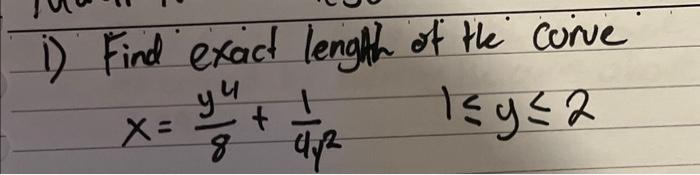 i) Find exact length of the curve
x = y⁴/8 + 1/4y² 1 ≤ y ≤ 2